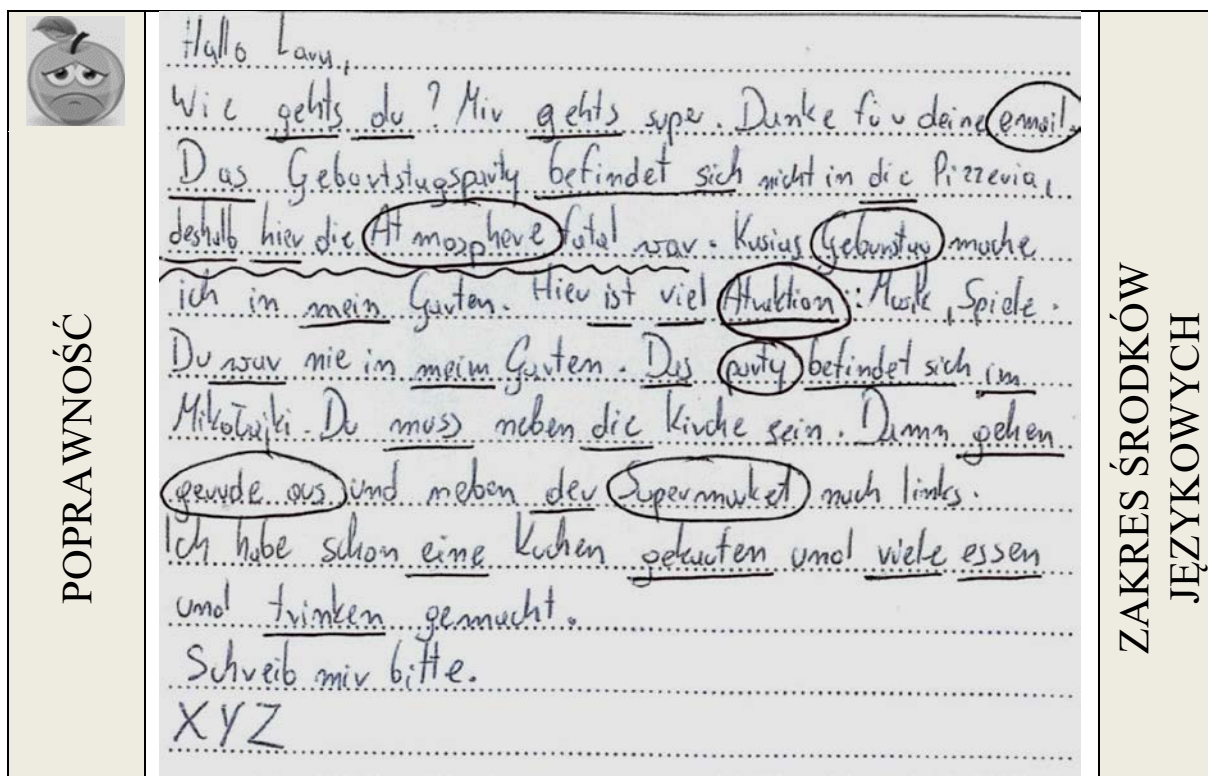 POPRAWNOŚĆ
Hallo Lara,
Wie gehts du? Mir gehts super. Danke für deine email.
Das Geburtstagsparty befindet sich nicht in die Pizzeria,
deshalb hier die Atmosphere fatal war. Kasias Geburstag mache
ich in mein Garten. Hier ist viel Atraktion: Musik, Spiele.
Du war nie in meim Garten. Das party befindet sich im
Mikołajki. Du muss neben die Kirche sein. Dann gehen
gerade aus und neben der Supermarket nach links.
Ich habe schon eine Kuchen gekaften und viele essen
und trinken gemacht.
Schreib mir bitte.
XYZ
ZAKRES ŚRODKÓW
JĘZYKOWYCH